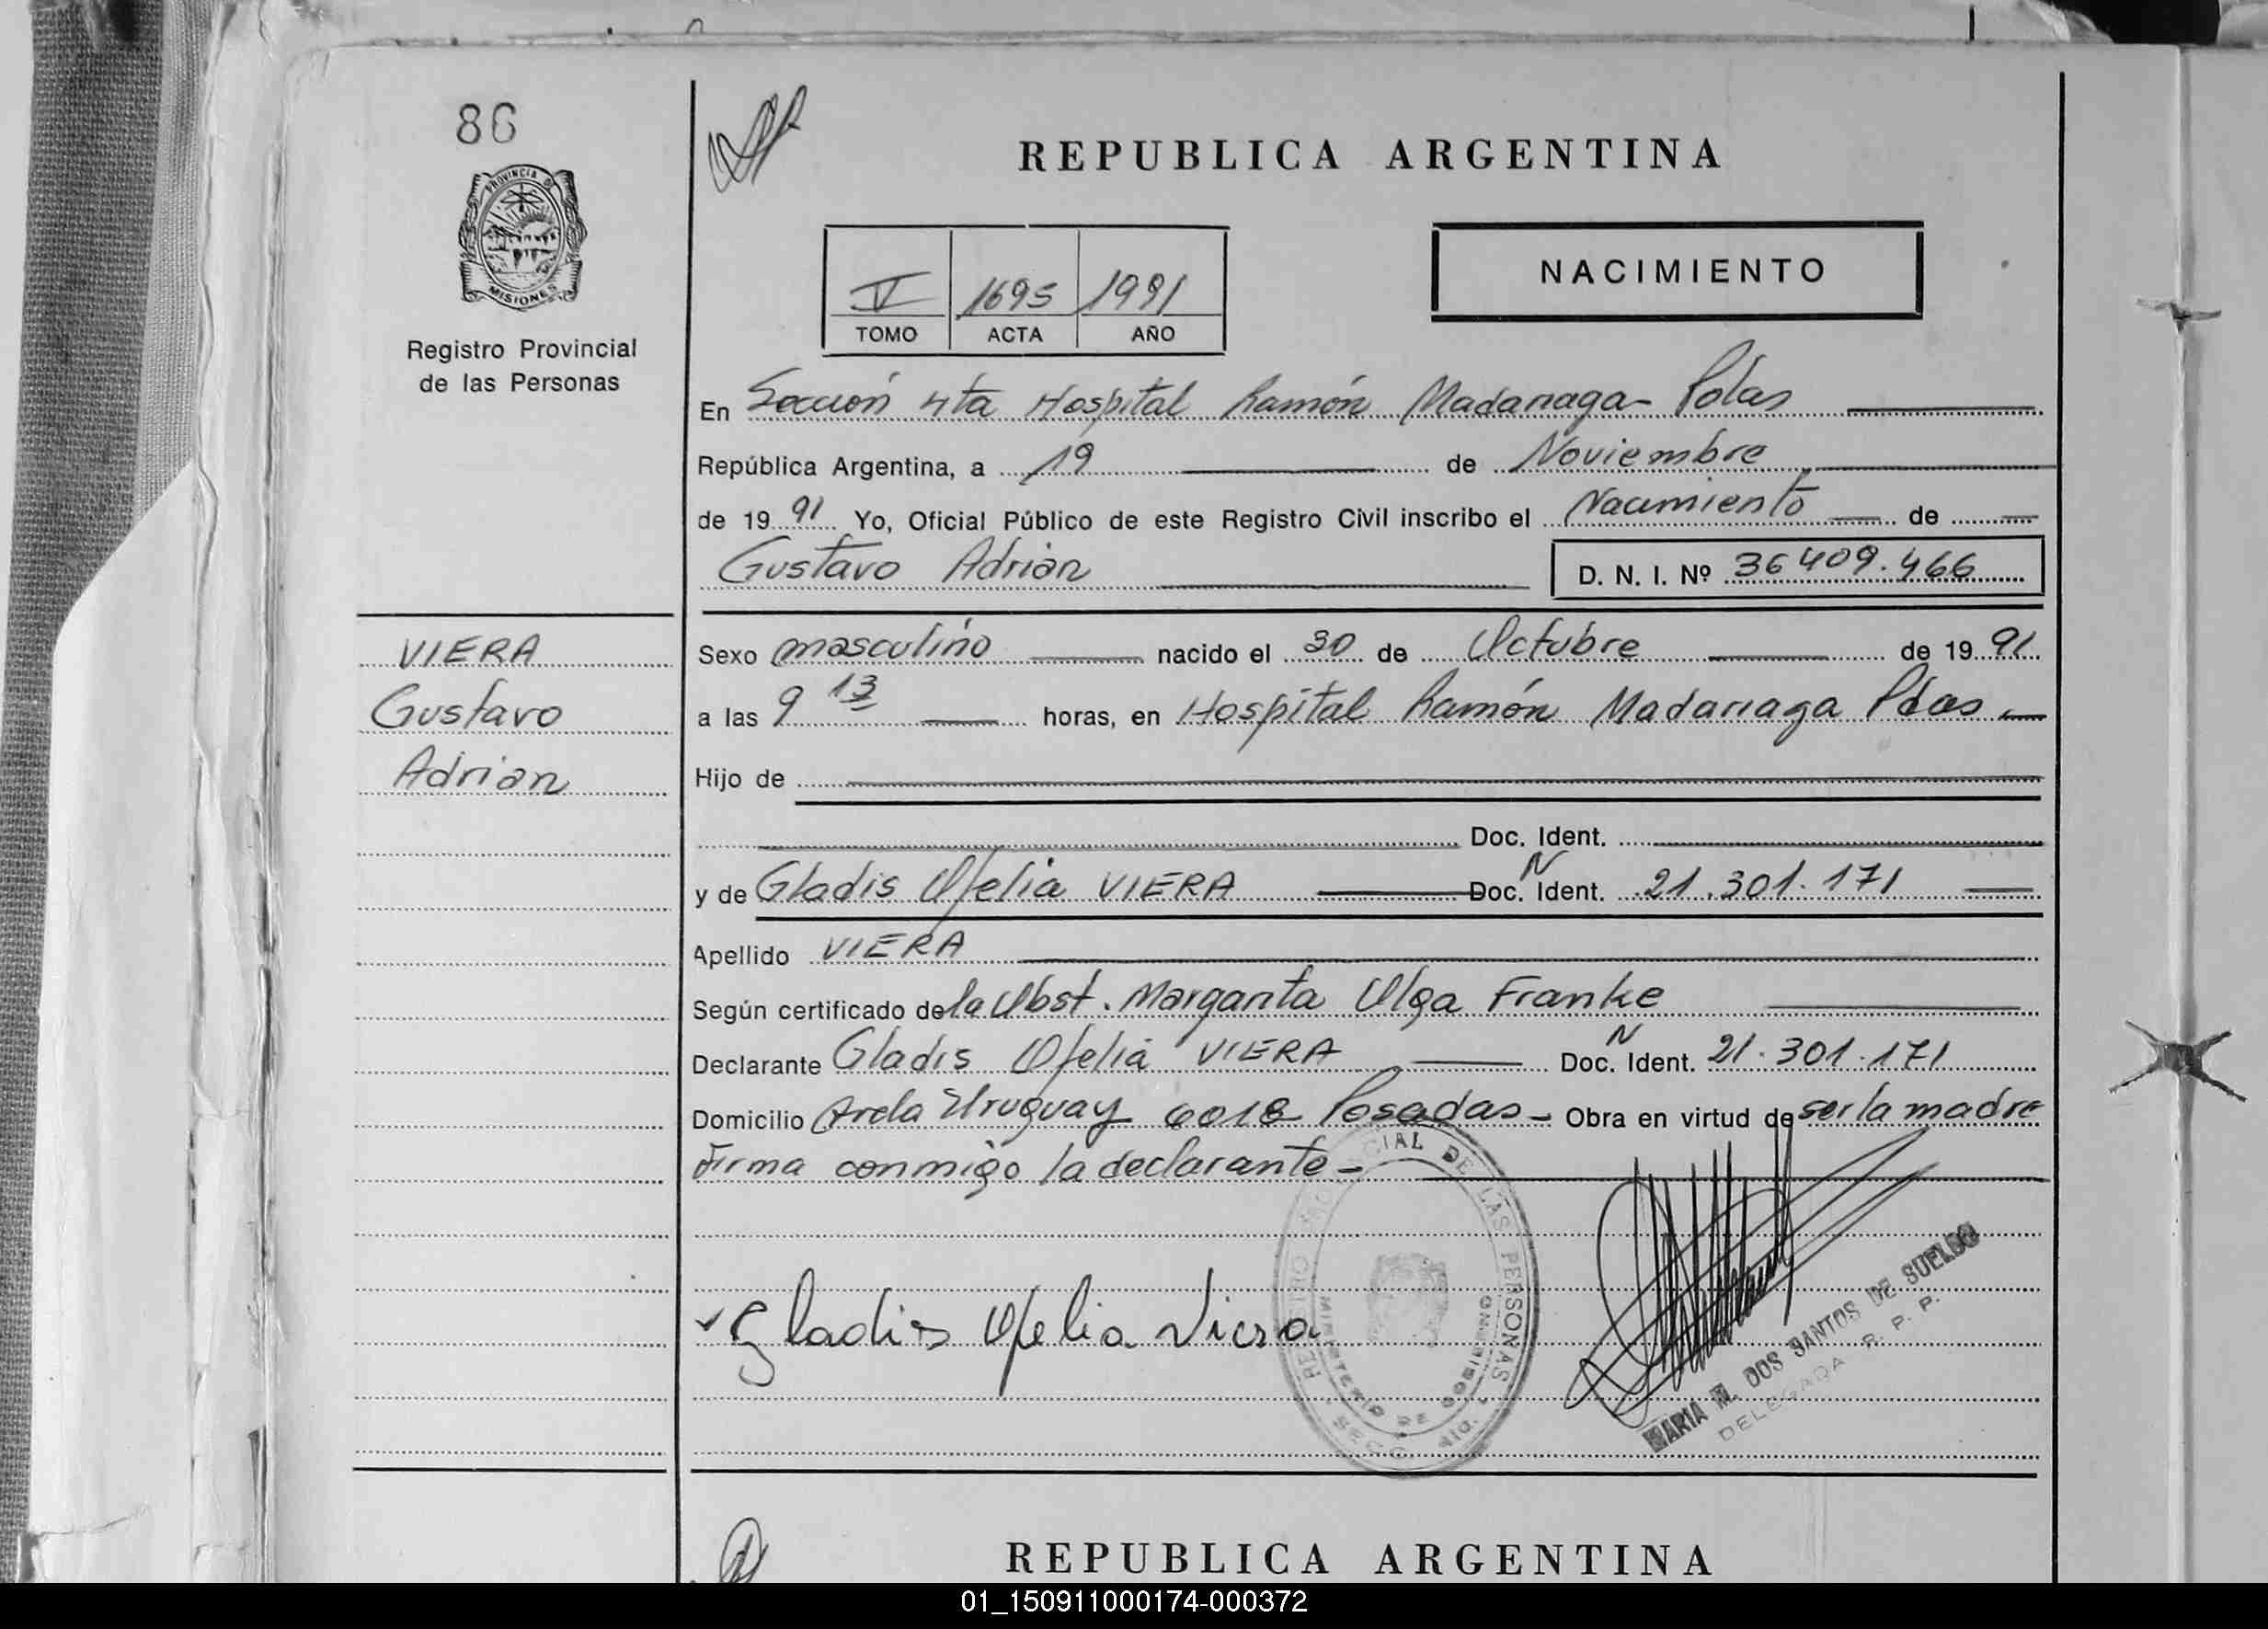 86
PROVINCIA DE
MISIONES
Registro Provincial
de las Personas
REPUBLICA ARGENTINA
V 1695 1991
TOMO ACTA AÑO
NACIMIENTO
En Sección 4ta Hospital Ramón Madariaga - Pdas
República Argentina, a 19 de Noviembre
de 1991 Yo, Oficial Público de este Registro Civil inscribo el Nacimiento de
Gustavo Adrián D. N. I. Nº 36409.466
VIERA
Gustavo
Adrian
Sexo masculino nacido el 30 de Octubre de 1991
a las 9 13 horas, en Hospital Ramón Madariaga Pdas
Hijo de
Doc. Ident.
y de Gladis Ofelia VIERA Doc. N Ident. 21.301.171
Apellido VIERA
Según certificado de la Obst. Margarita Olga Franke
Declarante Gladis Ofelia VIERA Doc. N Ident. 21.301.171
Domicilio Avda Uruguay 6018 Posadas - Obra en virtud de ser la madre
Firma conmigo la declarante -
Gladis Ofelia Viera
REGISTRO PROVINCIAL DE LAS PERSONAS
MINISTERIO DE GOBIERNO
SECC. 4ta.
MARIA M. DOS SANTOS DE SUELDO
DELEGADA R. P. P.
REPUBLICA ARGENTINA
01_150911000174-000372